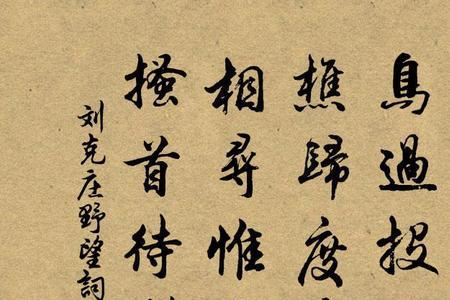 鳥過投
樵歸度
相尋惟
搔首待
刘克庄野望詞